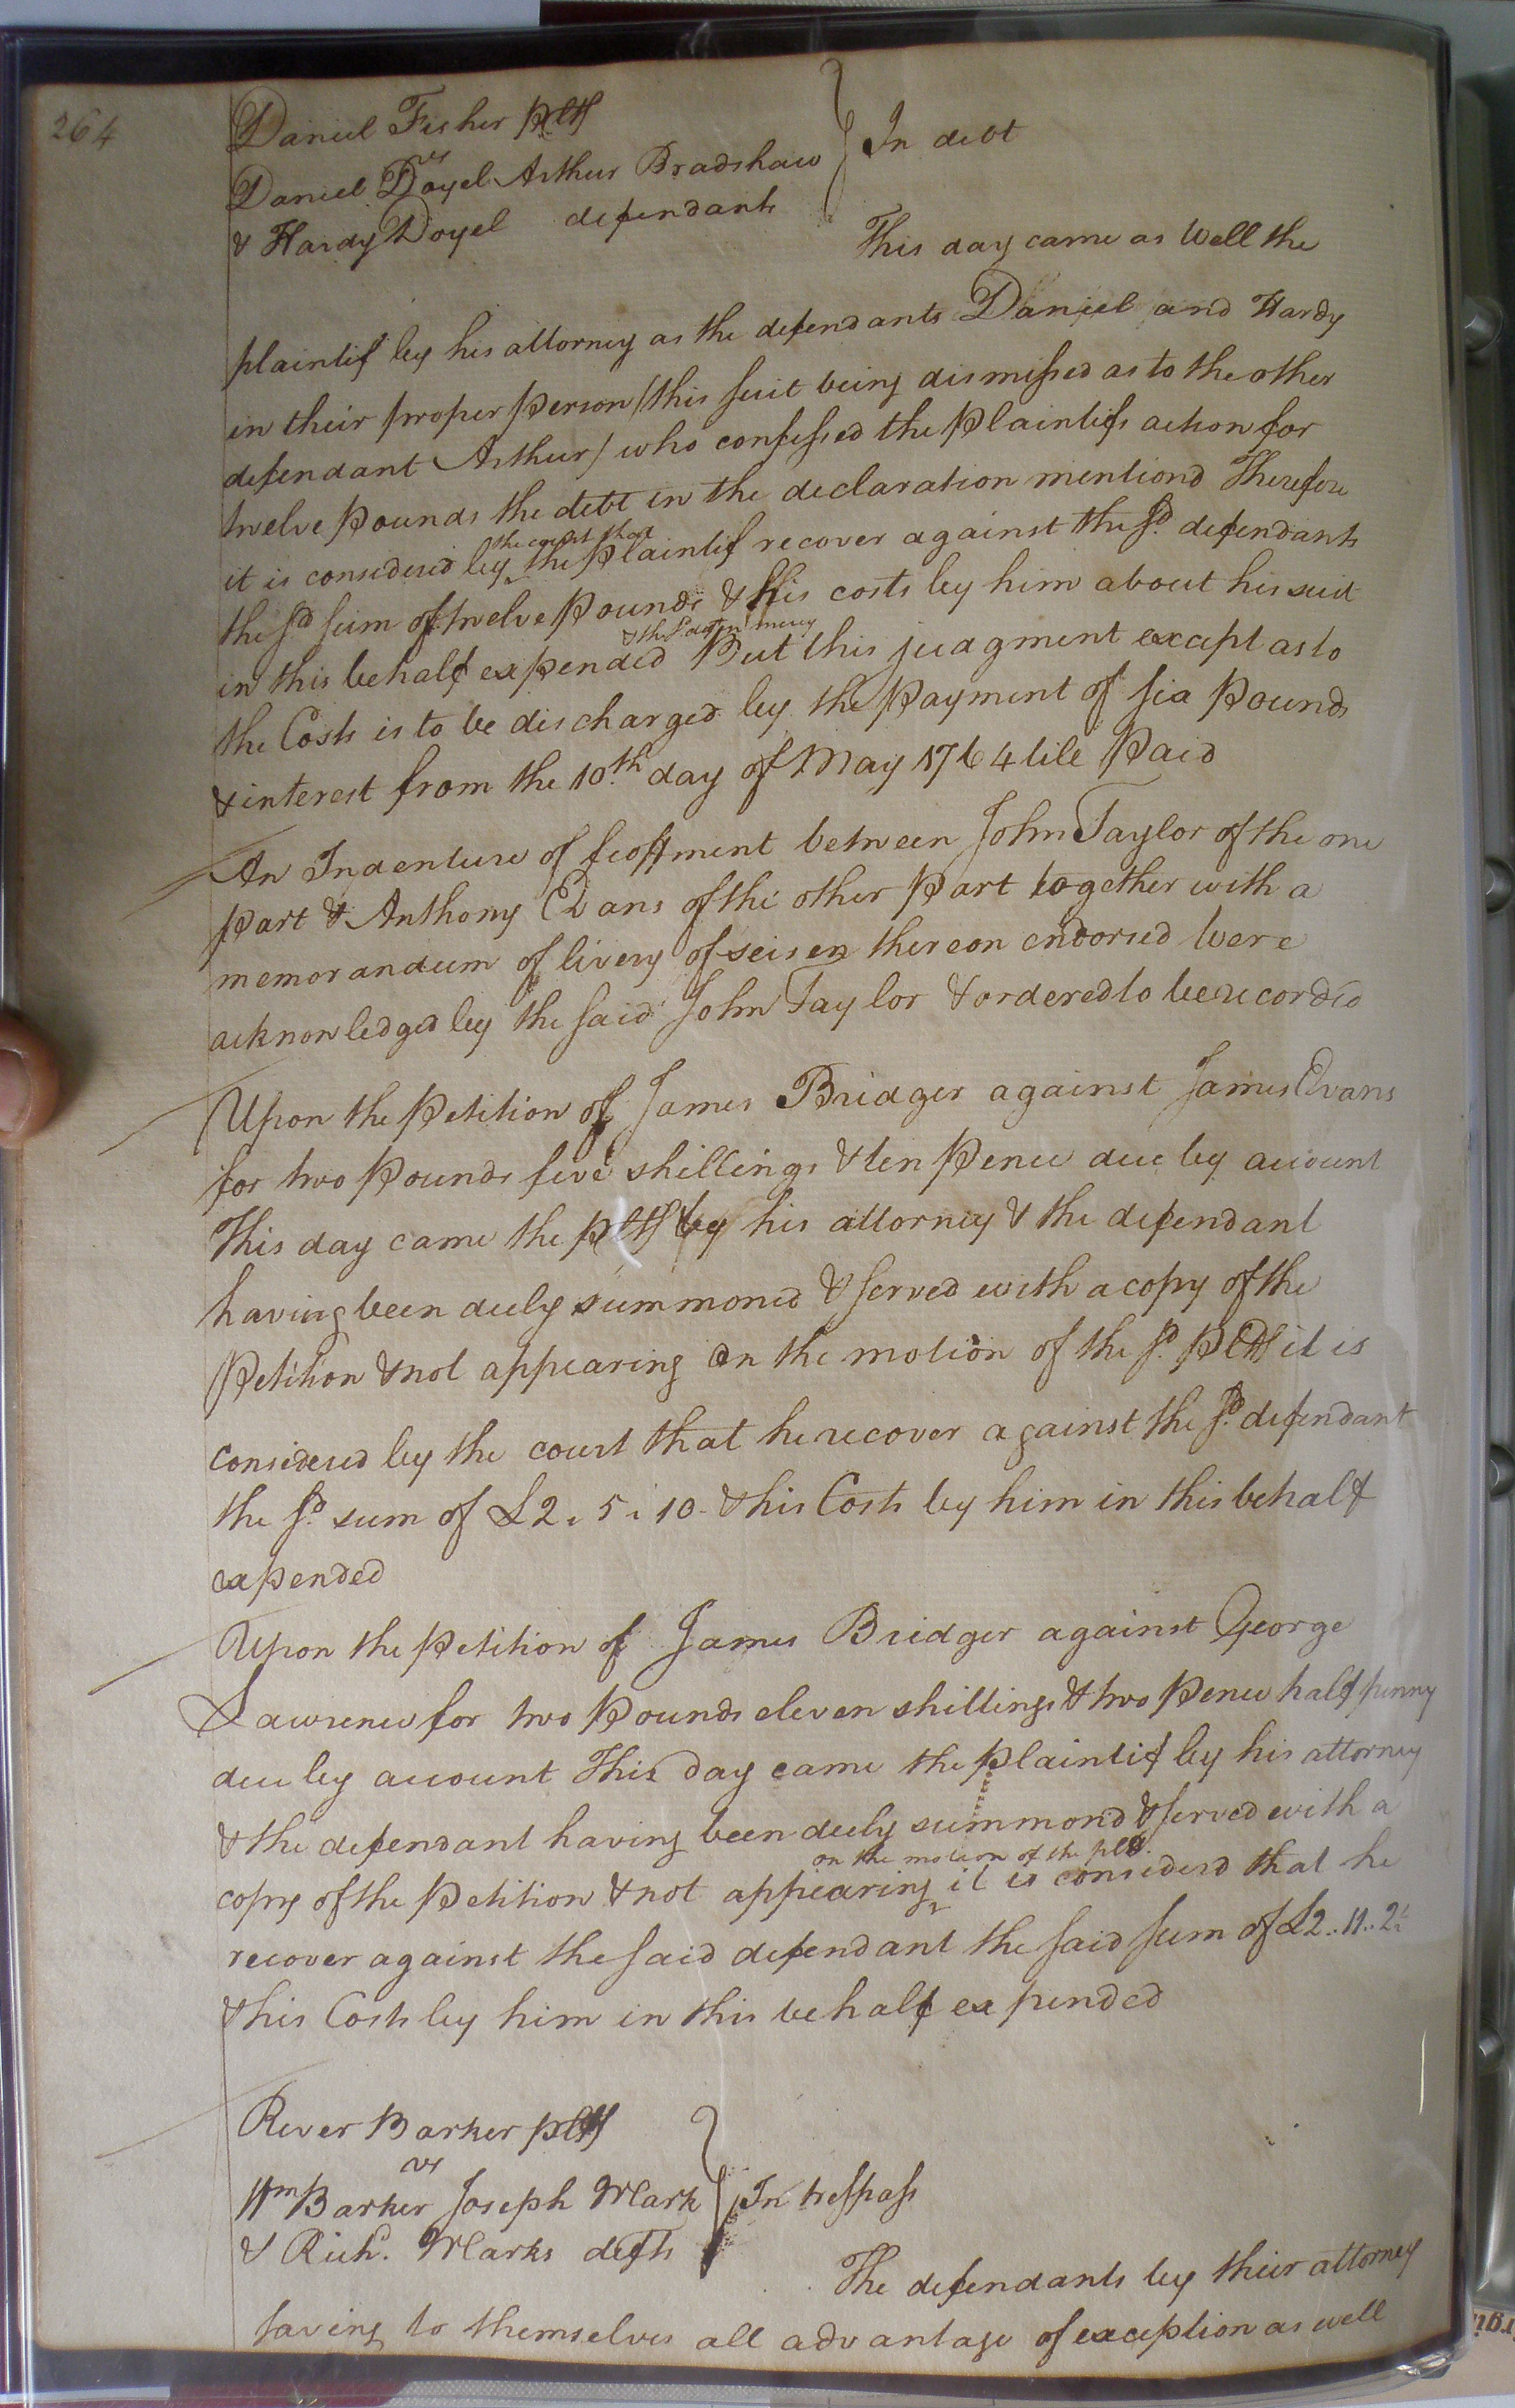 264
Daniel Fisher pltf
vs
Daniel Doyel Arthur Bradshaw
& Hardy Doyel defendants
In debt
This day came as well the
plaintif by his attorney as the defendants Daniel and Hardy
in their proper person /this suit being dismissed as to the other
defendant Arthur/ who confessed the plaintifs action for
twelve pounds the debt in the declaration mentiond Therefore
the court that
it is considered by the plaintif recover against the sd. defendants
the sd sum of twelve pounds & his costs by him about his suit
& the sd. defts in mercy
in this behalf expended But this judgment except as to
the Costs is to be discharged by the payment of six pounds
& interest from the 10th day of May 1764 till paid
An Indenture of feoffment between John Taylor of the one
part & Anthony Evans of the other part together with a
memorandum of livery of seisen thereon endorsed were
acknowledged by the said John Taylor & ordered to be recorded
Upon the petition of James Bridger against James Evans
for two pounds five shillings & ten pence due by account
This day came the pltf by his attorney & the defendant
having been duly summoned & served with a copy of the
petition & not appearing On the motion of the sd. pltf it is
considered by the court that he recover against the sd. defendant
the sd. sum of £2. 5. 10. & his Costs by him in this behalf
expended
Upon the petition of James Bridger against George
Lawrence for two pounds eleven shillings & two pence half penny
due by account This day came the plaintif by his attorney
& the defendant having been duly summond & served with a
on the motion of the pltf.
copy of the petition & not appearing it is considerd that he
recover against the said defendant the said sum of £2..11..2½
& his Costs by him in this behalf expended
River Barker pltf
vs
Wm Barker Joseph Mark
& Richd. Marks defts
In trespass
The defendants by their attorney
saving to themselves all advantage of exception as well